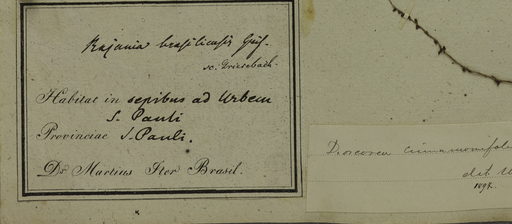 Rajania brasiliensis Gris.
sc. Grisebach.
Habitat in sepibus ad Urbem
S. Pauli
Provinciae S. Pauli.
Dr. Martius Iter Brasil.
Dioscorea cinnamomifol
det. U
1897.